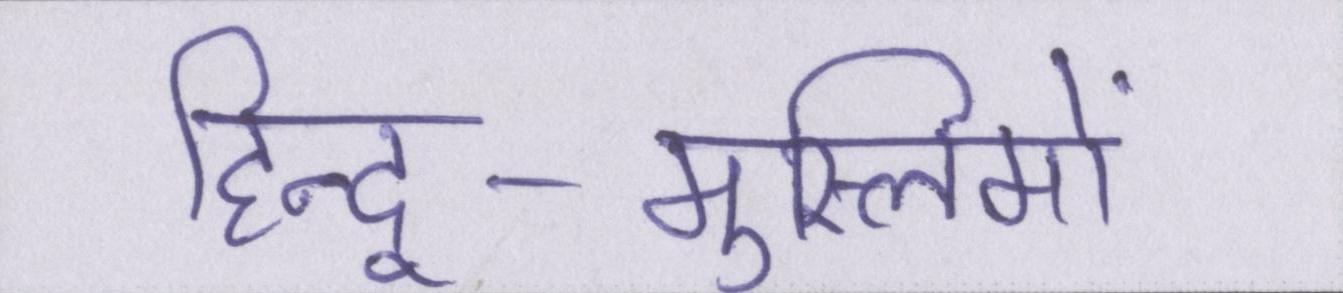 हिन्दू-मुस्लिमों